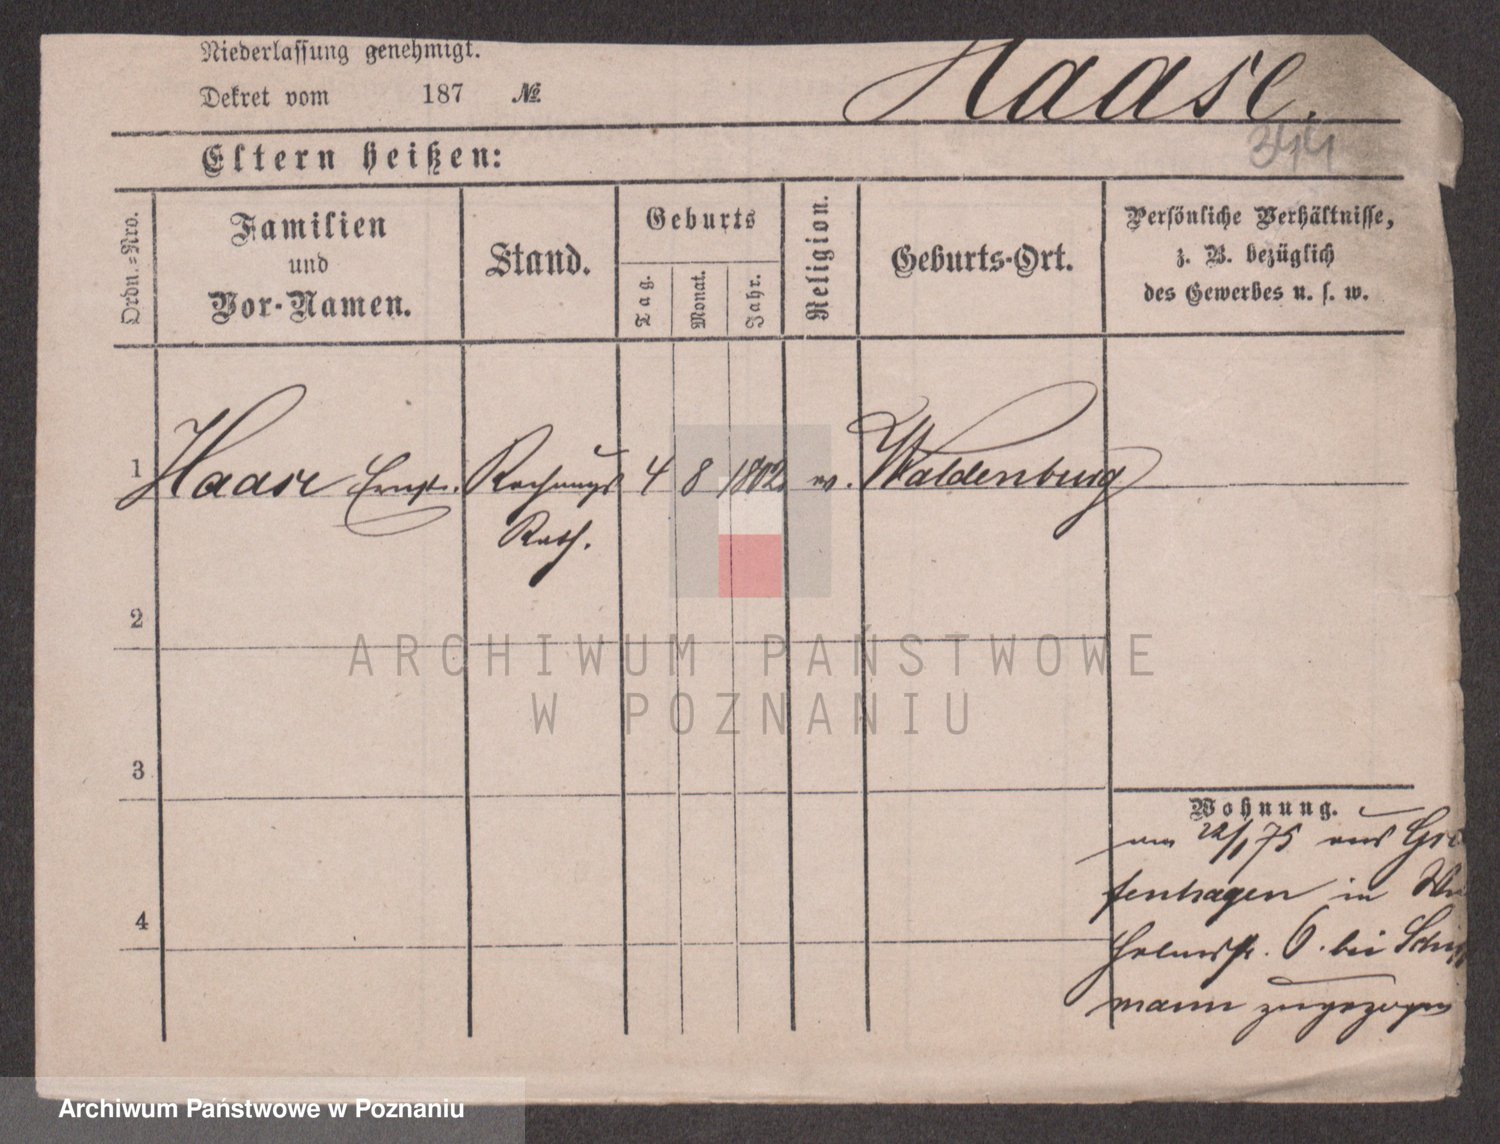 Niederlassung genehmigt.
Dekret vom 187 №
Haase.
344
Eltern heißen:
Ordn.=Nro.
Familien
und
Vor-Namen.
Stand.
Geburts
Tag.
Monat.
Jahr.
Religion.
Geburts-Ort.
Persönliche Verhältnisse,
z. B. bezüglich
des Gewerbes u. s. w.
1 Haase Ernst. Rechnungs 4 8 1802. ev. Waldenburg
Rath.
2
3
4
Wohnung.
am 22/1 75 aus Grei
fenhagen in Wil
helmstr. 6. bei Schiff
mann zugezogen
ARCHIWUM PAŃSTWOWE
W POZNANIU
Archiwum Państwowe w Poznaniu